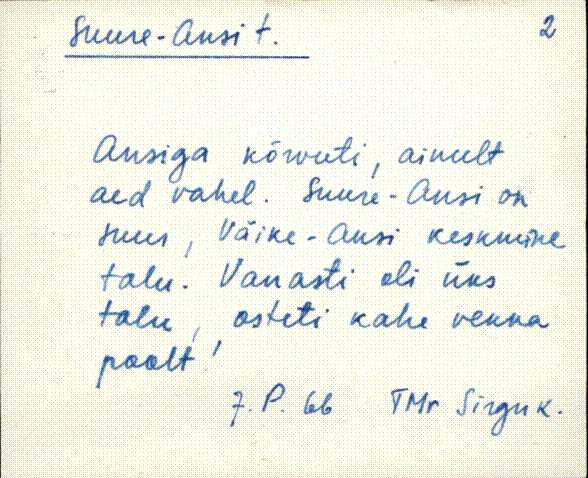 Suure-Ansi t.
2
Ansiga kõrvuti, ainult
aed vahel. Suure-Ansi on
suur, Väike-Ansi keskmine
talu. Vanasti oli üks
talu, osteti kahe venna
poolt!
7. P. 66 TMr Sirguk.